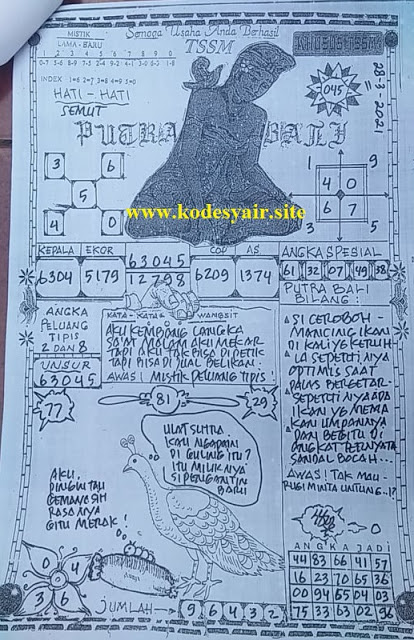 MISTIK
LAMA - BARU
1 2 3 4 5 6 7 8 9 0
Semoga Usaha Anda Berhasil
TSSM
KHUSUS TSSM
INDEX : 1=6 2=7 3=8 4=9 5=0
HATI - HATI
SEMUT
045
28-3-2021
PUTRA BALI
3 6
5
4 0
1 9
4 0
6 7
3 5
www.kodesyair.site
KEPALA EKOR
6304 5179
63045
12798
COP AS
6209 1374
ANGKA SPESIAL
61 32 07 49 58
ANGKA
PELUANG
TIPIS
2 DAN 8
UNSUR
63045
KATA - KATA WANGSIT
AKU KEMBANG LANGKA
SAAT MALAM AKU MEKAR
TAPI AKU TAK BISA DI PETIK
TAPI BISA DI JUAL BELIKAN.
AWAS! MISTIK PELUANG TIPIS!
PUTRA BALI
BILANG :
SI CEROBOH -
MANCING IKAN
DI KALI YG KERUH
LA SEPETINYA
OPTIMIS SAAT
BERGETAR-
SEPETINYA ADA
IKAN YG MEMA
KAN UMPANNYA
DAN BEGITU DI
ANGKAT TERNYATA
SANDAL BOCAH...
AWAS! TAK MAU
RUGI MINTA UNTUNG..!?
77
81
29
ULAT SUTRA
KAU NGAPAIN
DI GULING ITU?
ITU MILIKNYA
SI PENGANTIN
BARU
AKU..
INGIN TAU
RASANYA
GITU MERAK!
0 4
3 6
JUMLAH → 9 6 4 3 2
0
ANGKA JADI
44 83 66 41 57
16 23 70 65 36
00 94 65 04 03
75 33 63 02 96